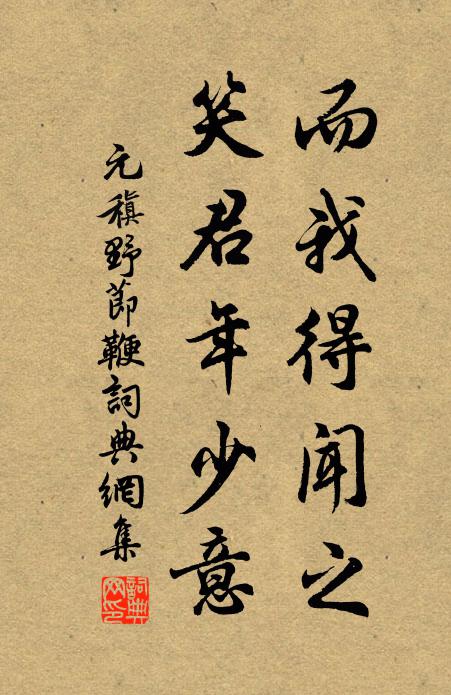 而我得闻之
笑君年少意
元稹野節鞭詞典網集
詞典網印